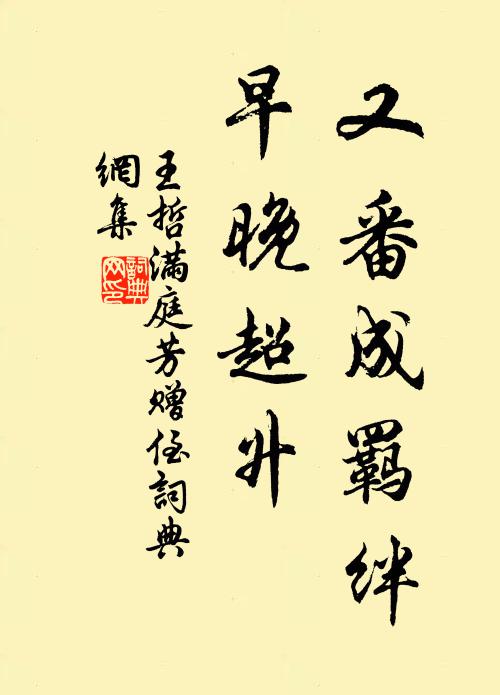 又番成羈絆
早晚超升
王哲滿庭芳贈侄詞典
網集
詞典
网印